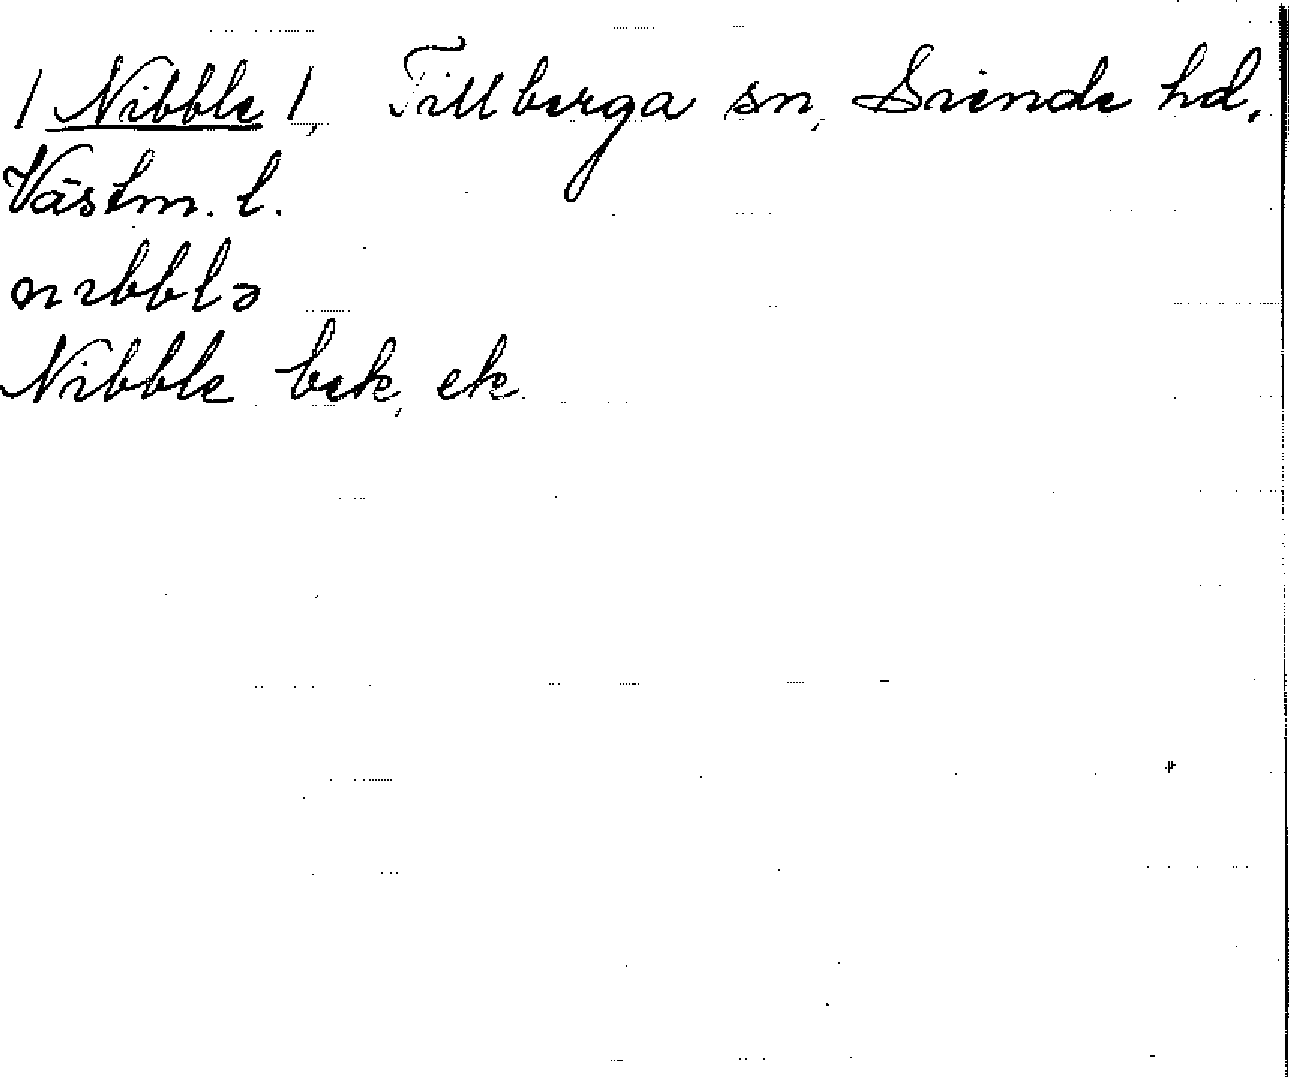 / Nibble /, Tillberga sn, Siende hd,
Västm. l.
nibblə
Nibble bek, ek.